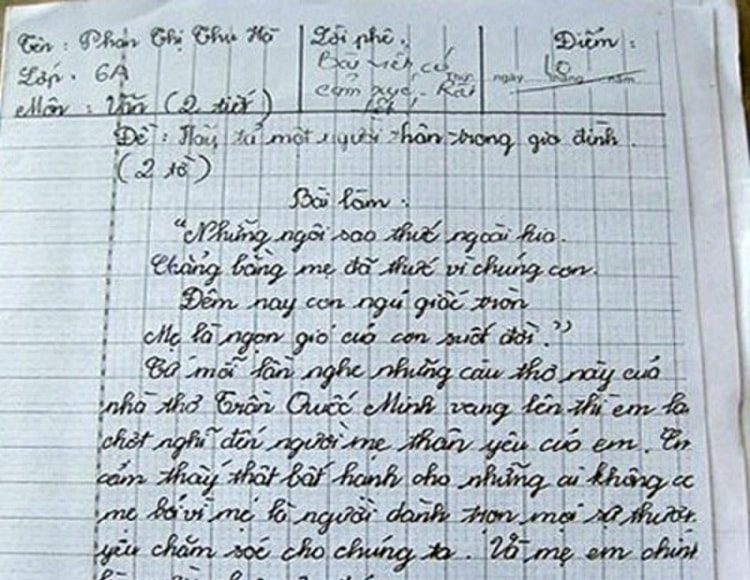 Tên : Phan Thị Thu Hà
Lời phê :
Điểm :
Lớp : 6A
Bài viết có
10
Môn : Văn (2 tiết)
cảm xúc. Rất
tốt!
ngày tháng năm
Đề : Hãy tả một người thân trong gia đình.
(2 tờ)
Bài làm :
"Những ngôi sao thức ngoài kia.
Chẳng bằng mẹ đã thức vì chúng con.
Đêm nay con ngủ giấc tròn
Mẹ là ngọn gió của con suốt đời."
Cứ mỗi lần nghe những câu thơ này của
nhà thơ Trần Quốc Minh vang lên thì em la
chợt nghĩ đến người mẹ thân yêu của em. Em
cảm thấy thật bất hạnh cho những ai không c
mẹ bởi vì mẹ là người dành trọn mọi sự thươn
yêu chăm sóc cho chúng ta. Và mẹ em chính